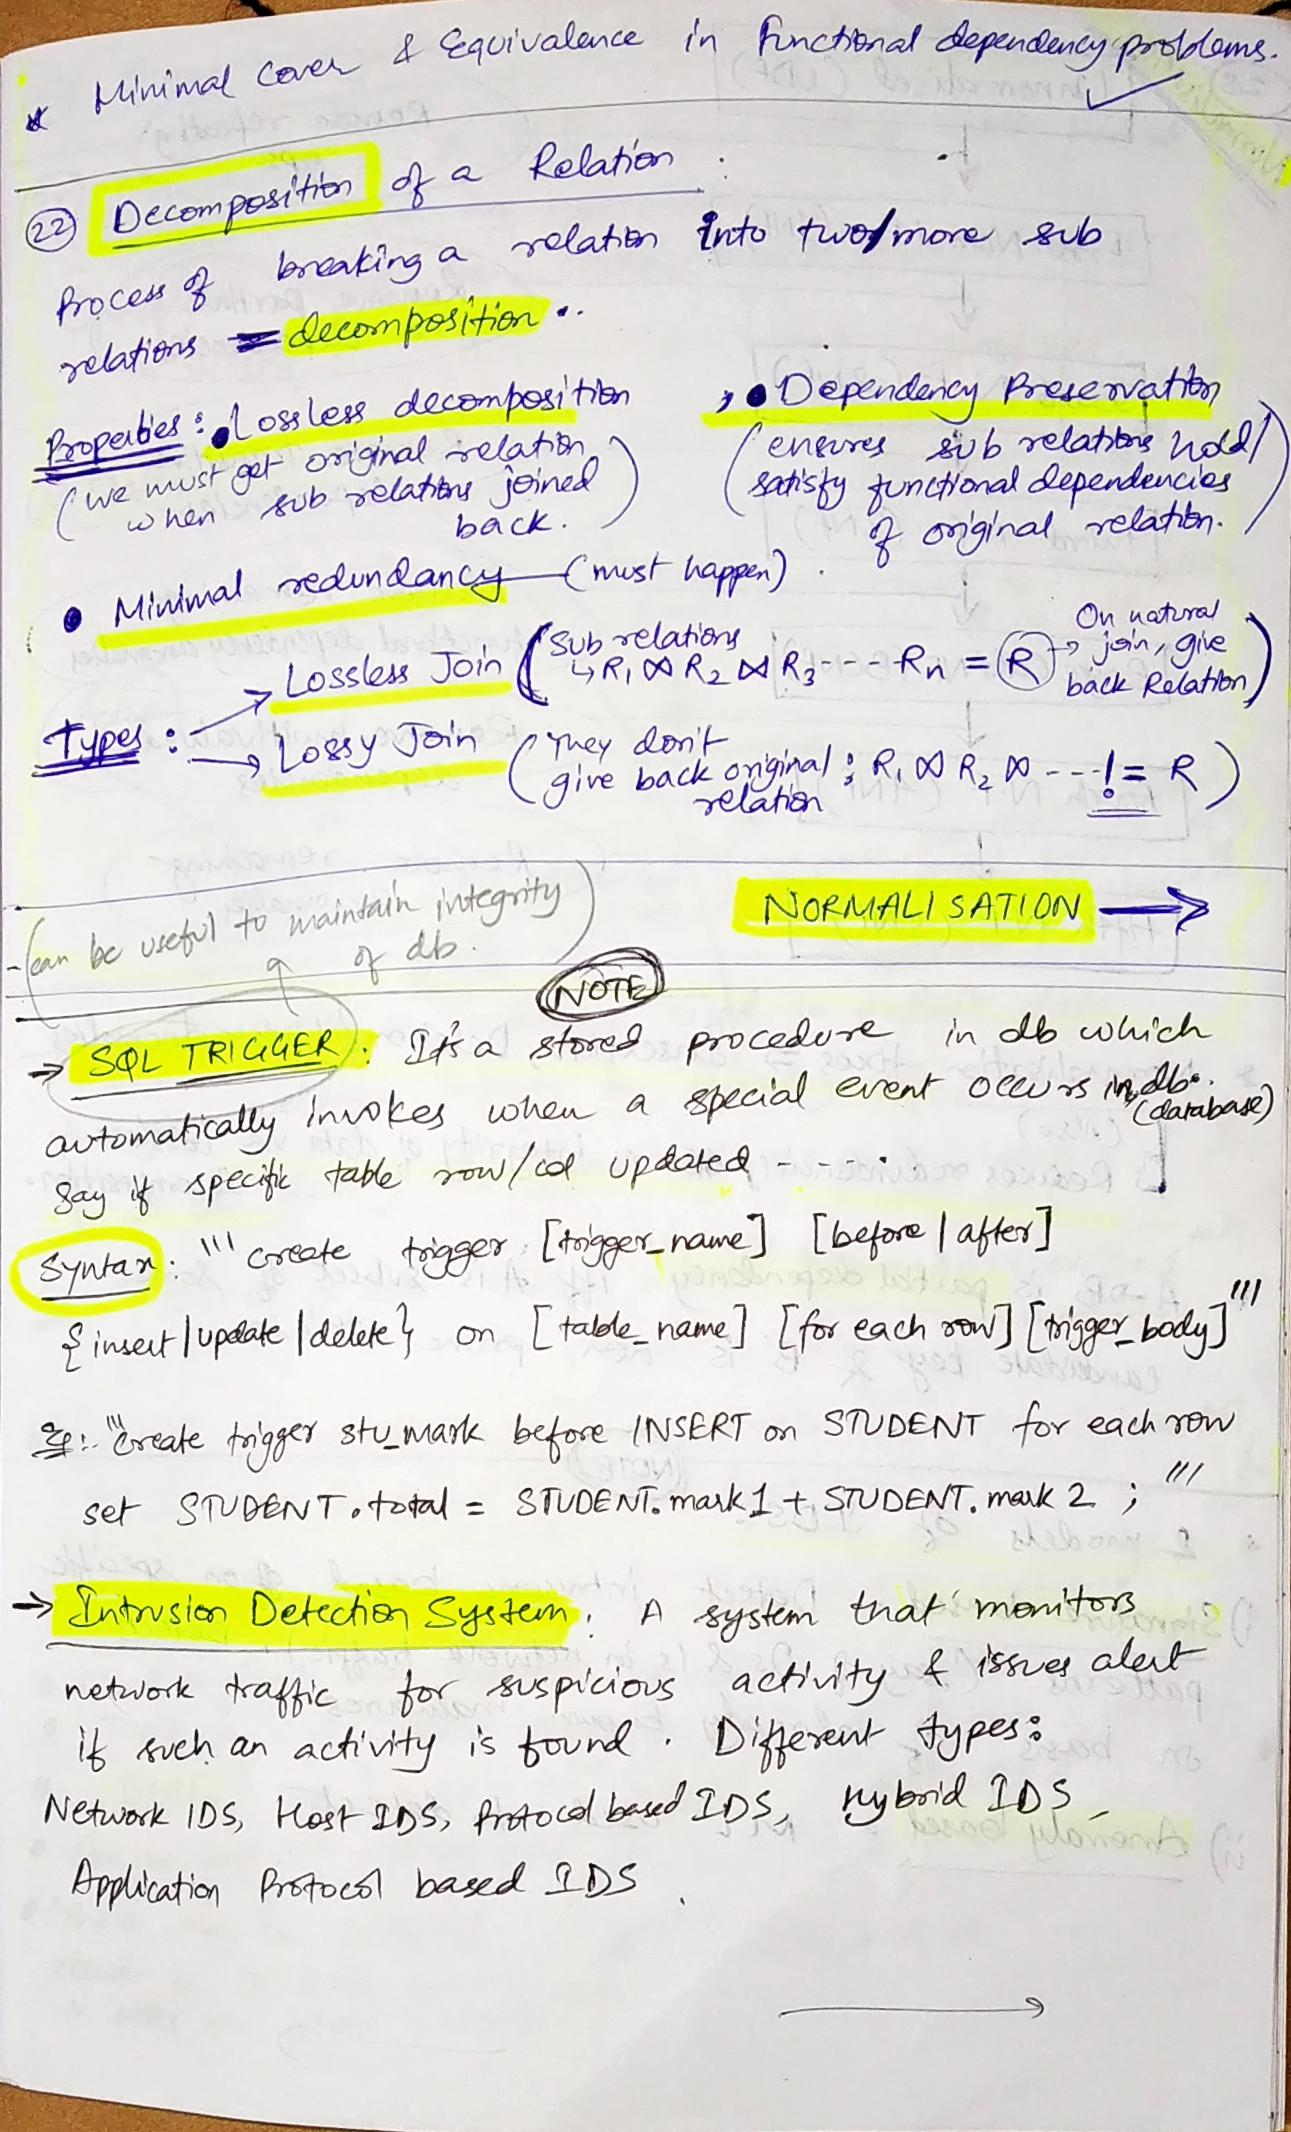 * Minimal Cover & Equivalence in Functional dependency problems.
(22) Decomposition of a Relation :
Process of breaking a relation into two/more sub
relations = decomposition..
Properties : • Lossless decomposition
(we must get original relation
when sub relations joined
back.)
, • Dependency Preservation
(ensures sub relations hold/
satisfy functional dependencies
of original relation.)
• Minimal redundancy — (must happen) .
Types :
→ Lossless Join (Sub relations
↳ R1 ⋈ R2 ⋈ R3 --- Rn = R → On natural
join, give
back Relation)
→ Lossy Join (They don't
give back original : R1 ⋈ R2 ⋈ --- != R)
relation
NORMALISATION →
(can be useful to maintain integrity
of db.)
NOTE
→ SQL TRIGGER : It's a stored procedure in db which
automatically invokes when a special event occurs in db..
(database)
Say if specific table row/col updated - - - .
Syntax : ''' create trigger [trigger_name] [before | after]
{insert | update | delete} on [table_name] [for each row] [trigger_body] '''
Eg:- '''Create trigger stu_mark before INSERT on STUDENT for each row
set STUDENT.total = STUDENT.mark1 + STUDENT.mark 2 ; '''
→ Intrusion Detection System : A system that monitors
network traffic for suspicious activity & issues alert
if such an activity is found . Different types:
Network IDS, Host IDS, Protocol based IDS, Hybrid IDS,
Application Protocol based IDS .